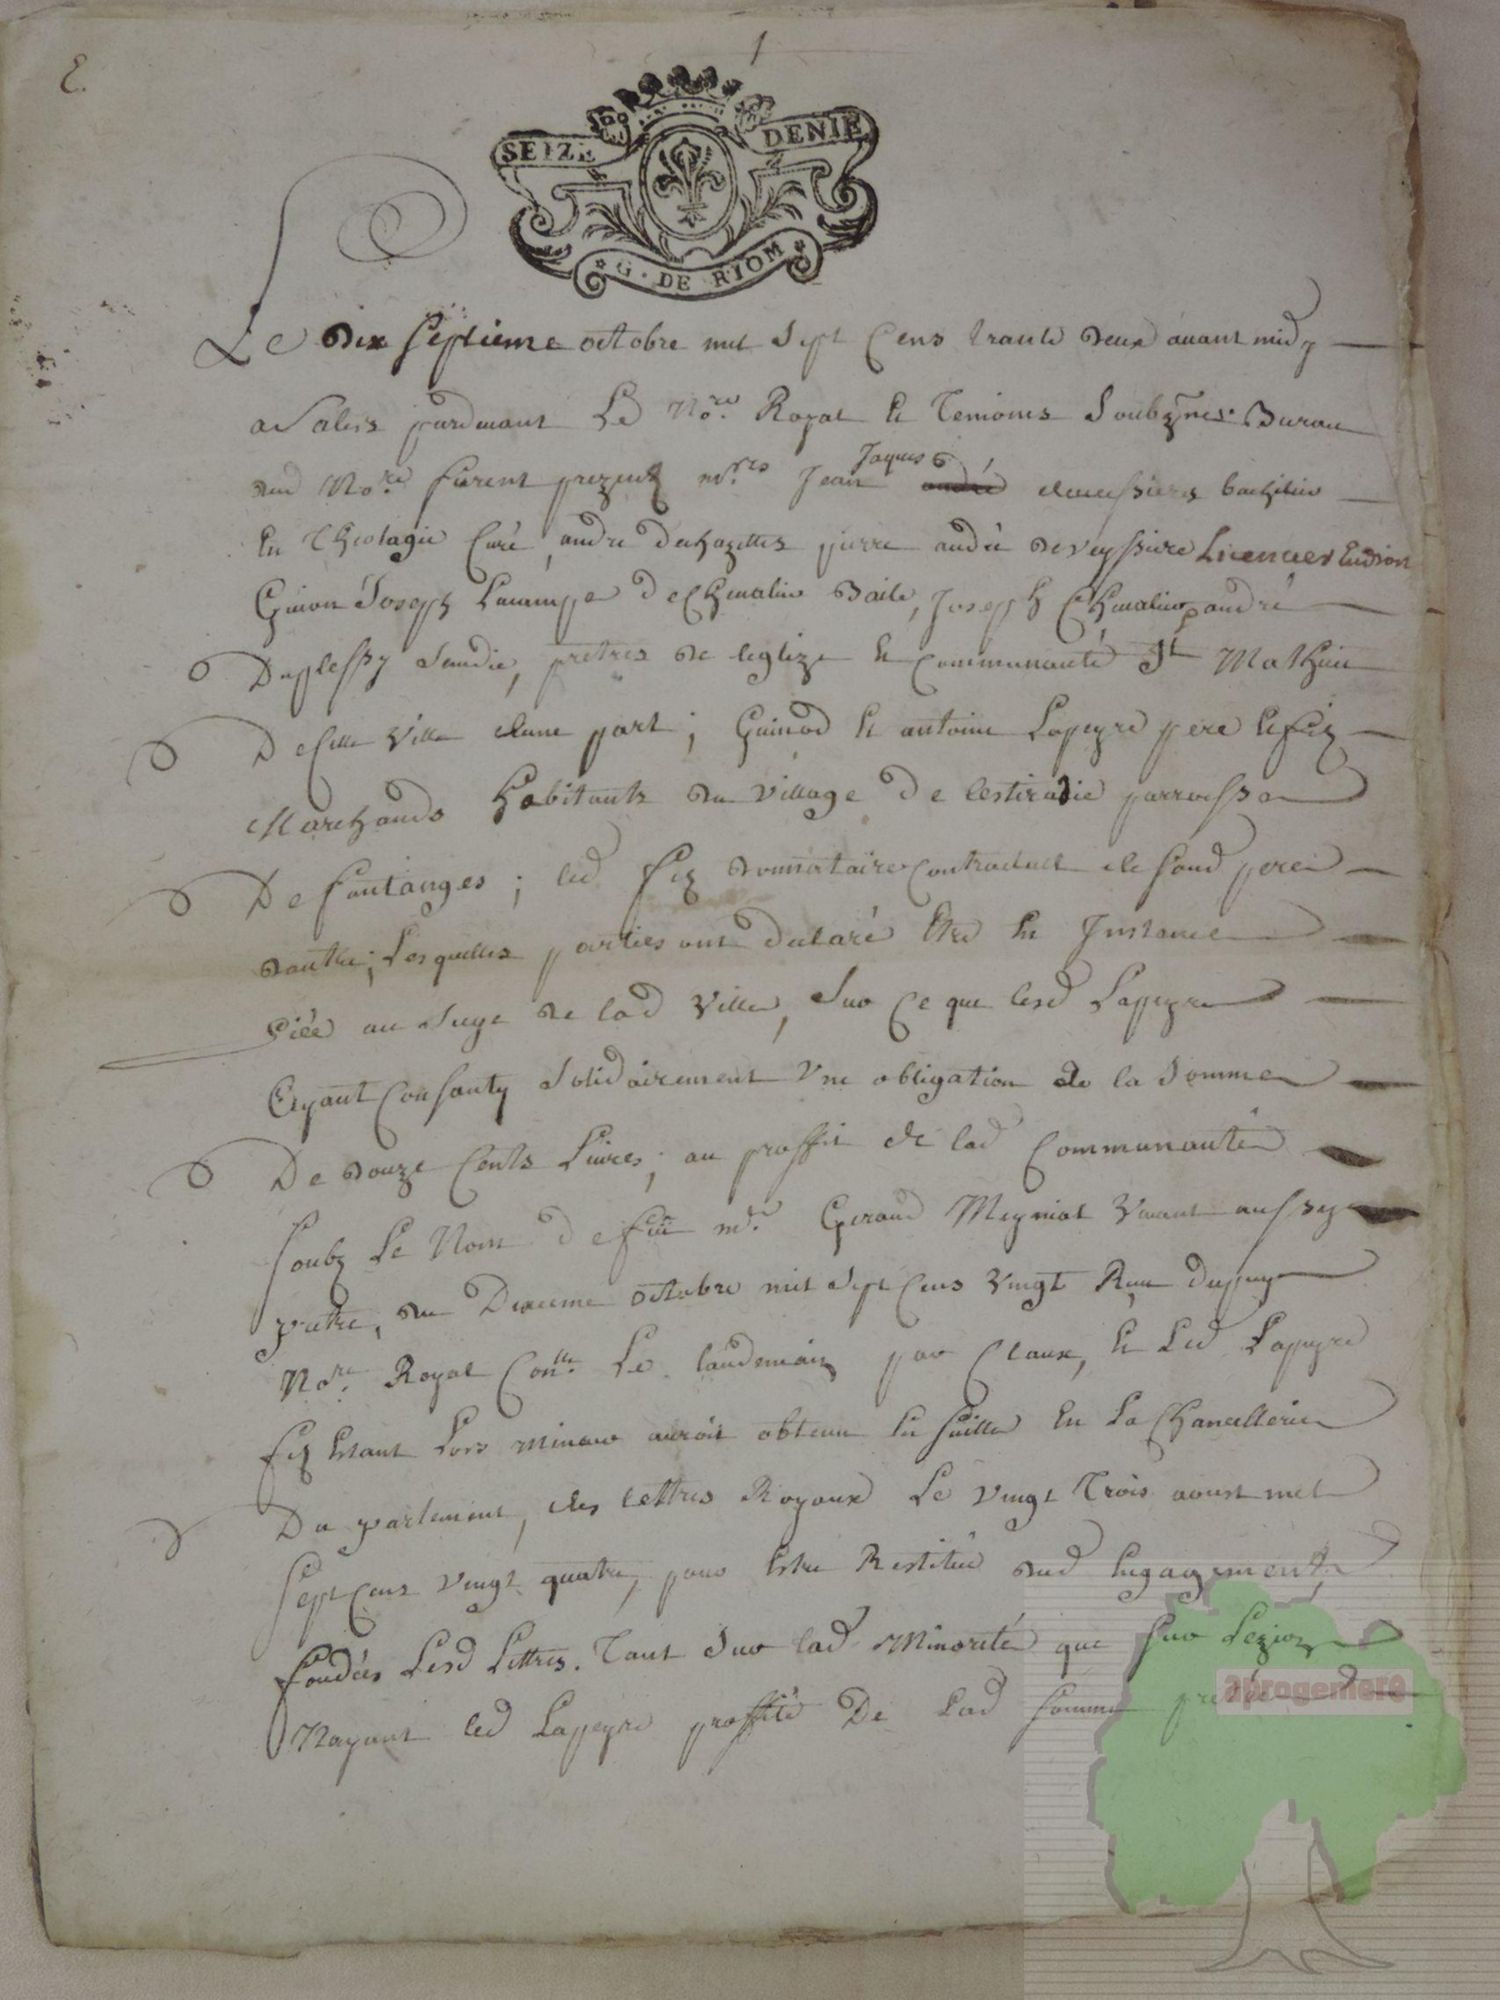 E.
1
SEIZE DENIE
G. DE RIOM
Le dix septieme octobre mil sept Cens trante deux avant midy
a Salers pardevant Le No.re Royal et Temoins Soubzsnes. Bureau
dud No.re furent prezents m.res Jean Jaques andré bachelier
En Theologie Curé, andré pierre andré deveyssiere Licencier Endroit
Joseph De Chevalier Baile, Joseph Chevalier, andré
Duplessy prêtres de leglize et Communauté St Mathieu
De cette Ville dune part; et antoine Lapeyre pere et fiz
Marchands Habitants du Village De lestiradie parroisse
De fontanges; led fiz donnataire Contractuel de sond pere
dautre; Lesquelles parties ont declaré Etre En Instance
au Siege de lad Ville, Sur Ce que lesd Lapeyre
Eyant Consanty Solidairement Vne obligation de la Somme
De douze Cents Livres, au proffit de lad Communauté
Soubz Le Nom De feu m.re Geraud Meyniat Vivant aussy
pretre, du Dixieme octobre mil Sept Cens Vingt Reçu Dupuy
No.re Royal Con.lle Le landemain par Claux, et Led Lapeyre
fiz Estant Lors Mineur auroit obtenu En suitte En La Chancellerie
Du parlement, des lettres Royaux Le Vingt Trois aoust mil
Sept Cens Vingt quatre, pour Estre Restitué dud Engagement,
fondées Lesd Lettres. Tant Sur lad Minorité que sur Lezion
Nayant led Lapeyre proffité De Lad somme
aprogemere